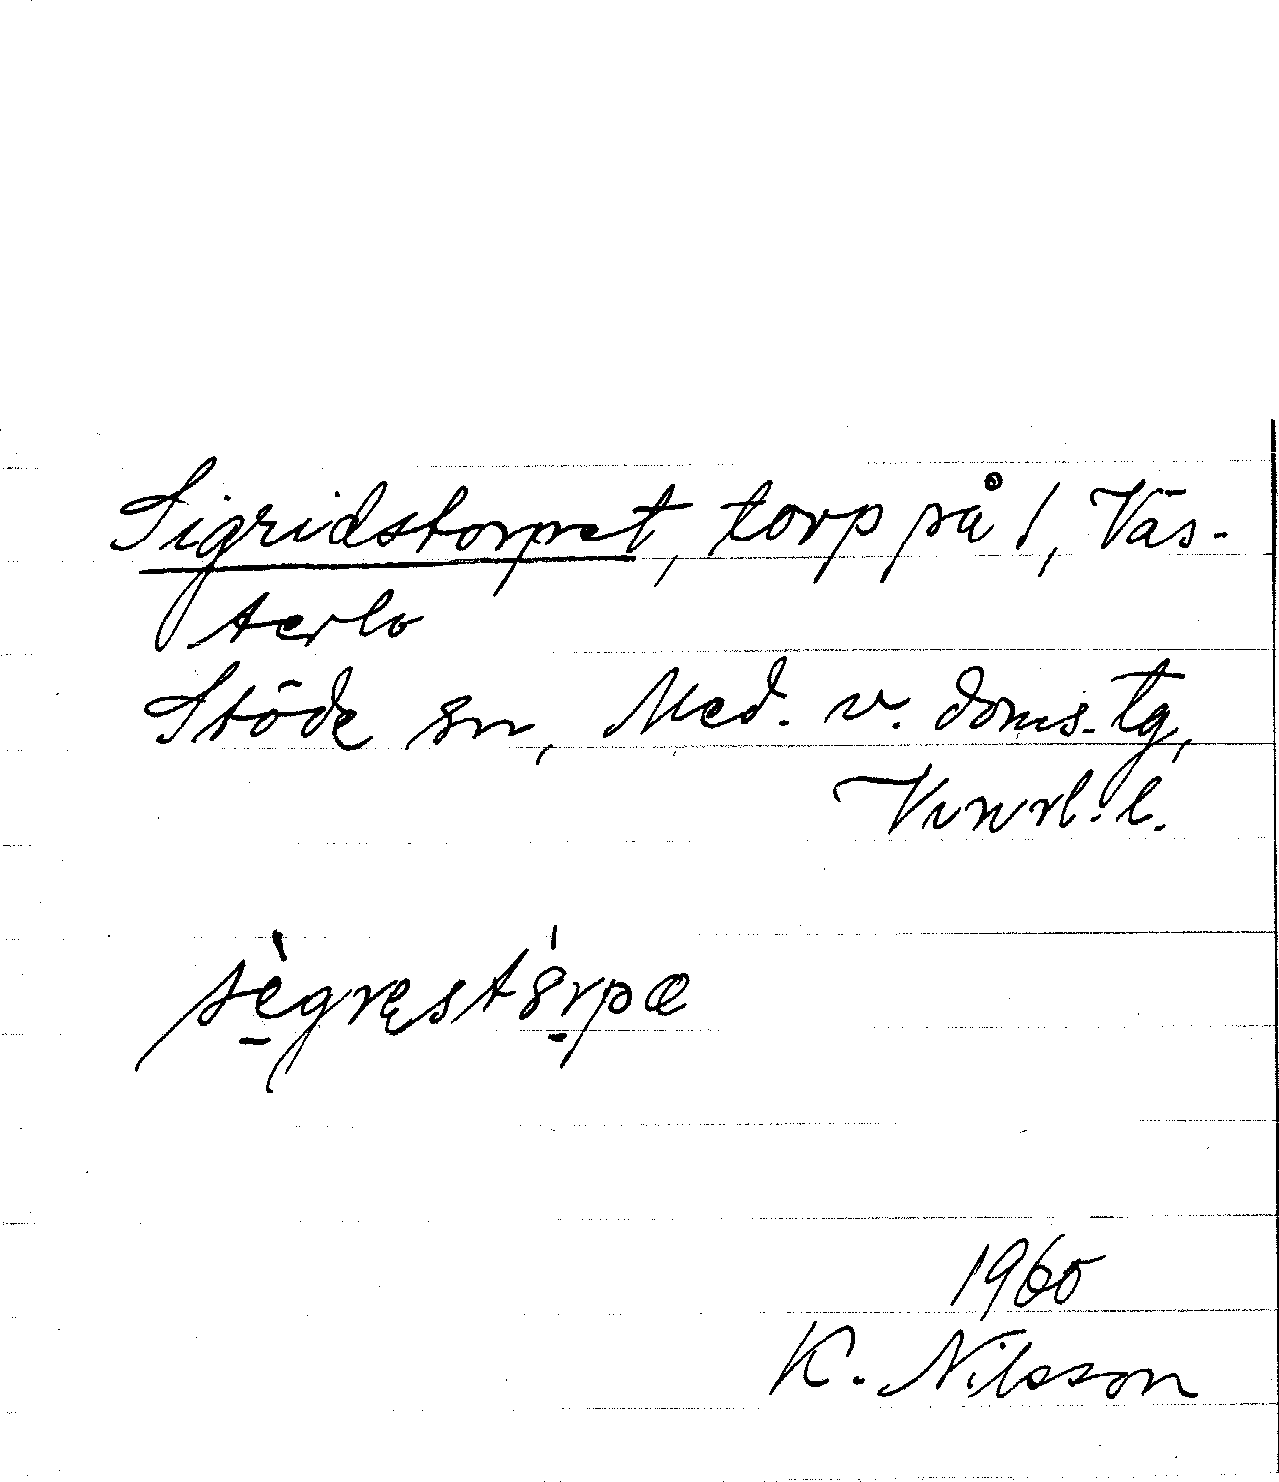 Sigridstorpet, torp på 1, Väs-
terlo
Stöde sn, Med. v. doms.tg,
Vnrl. l.
sègręstó̱rpæ
1960
K. Nilsson